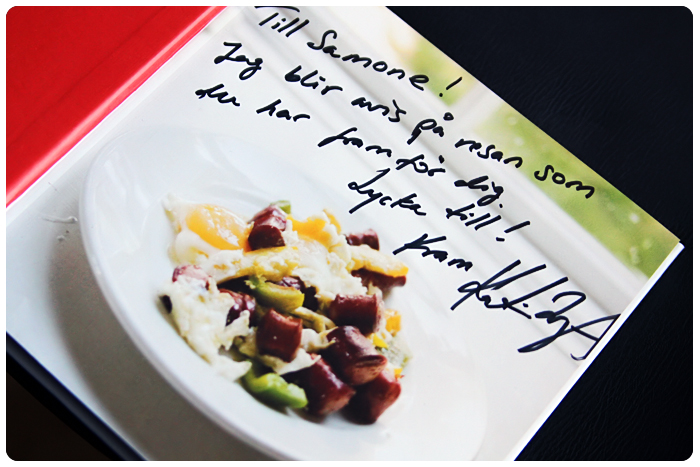 Till Samone!
Jag blir avis på resan som
du har framför dig.
Lycka till!
Kram